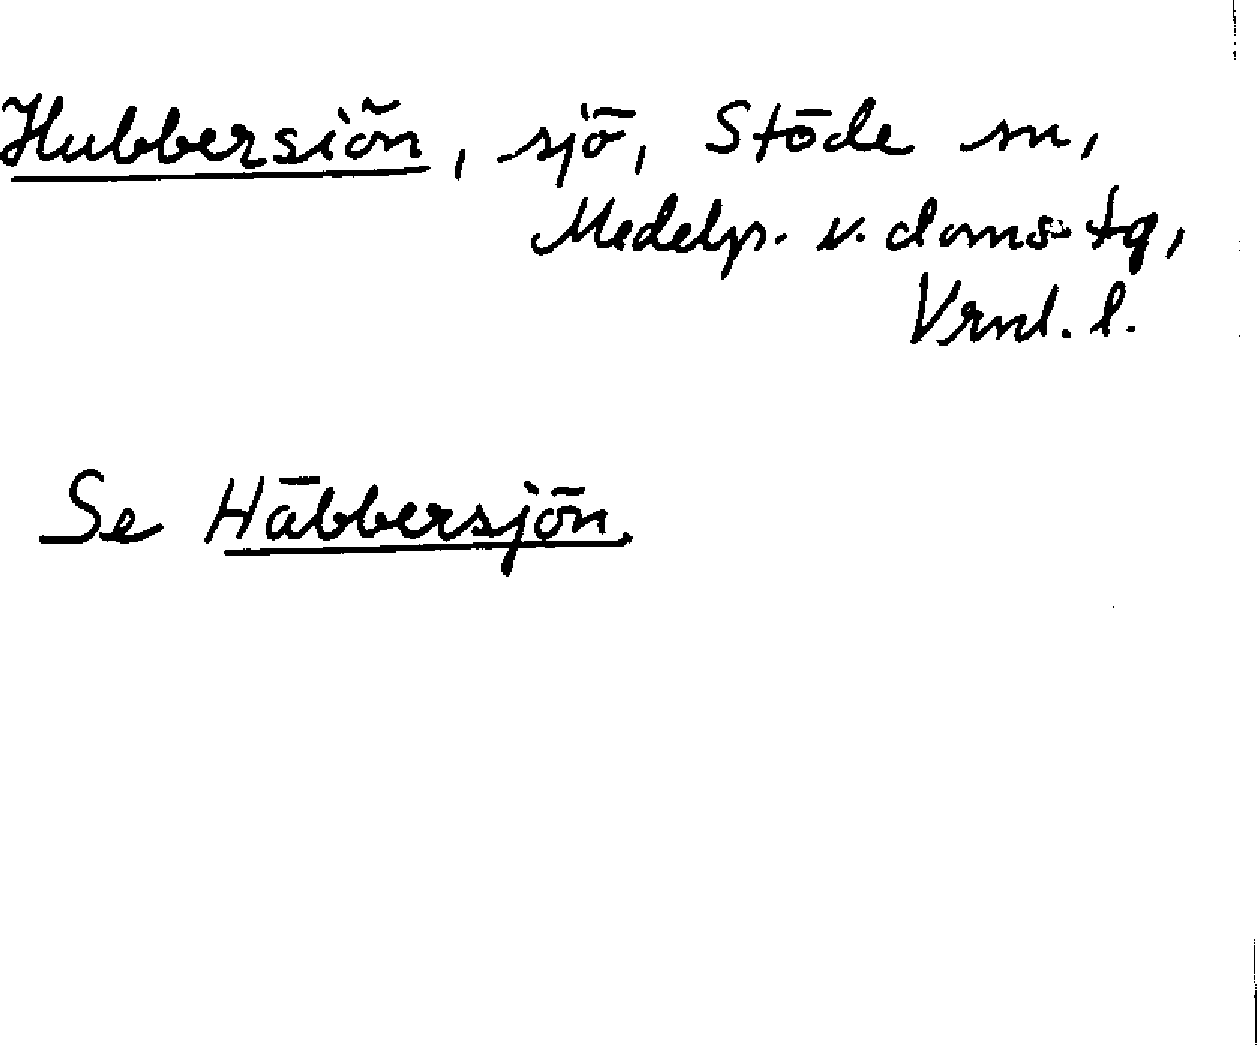 Hubbersiön, sjö, Stöde sn,
Medelp. v. doms tg,
Vrnl. l.
Se Häbbersjön.